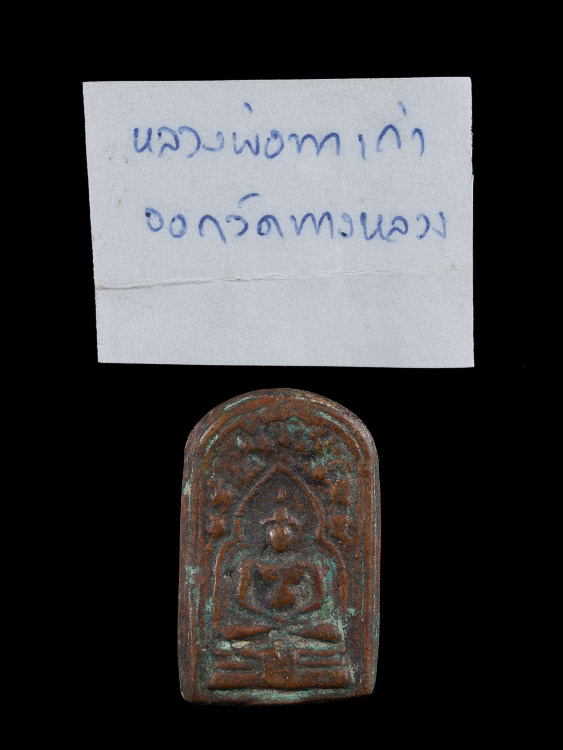 หลวงพ่อทาเก่า
ออกวัดทางหลวง